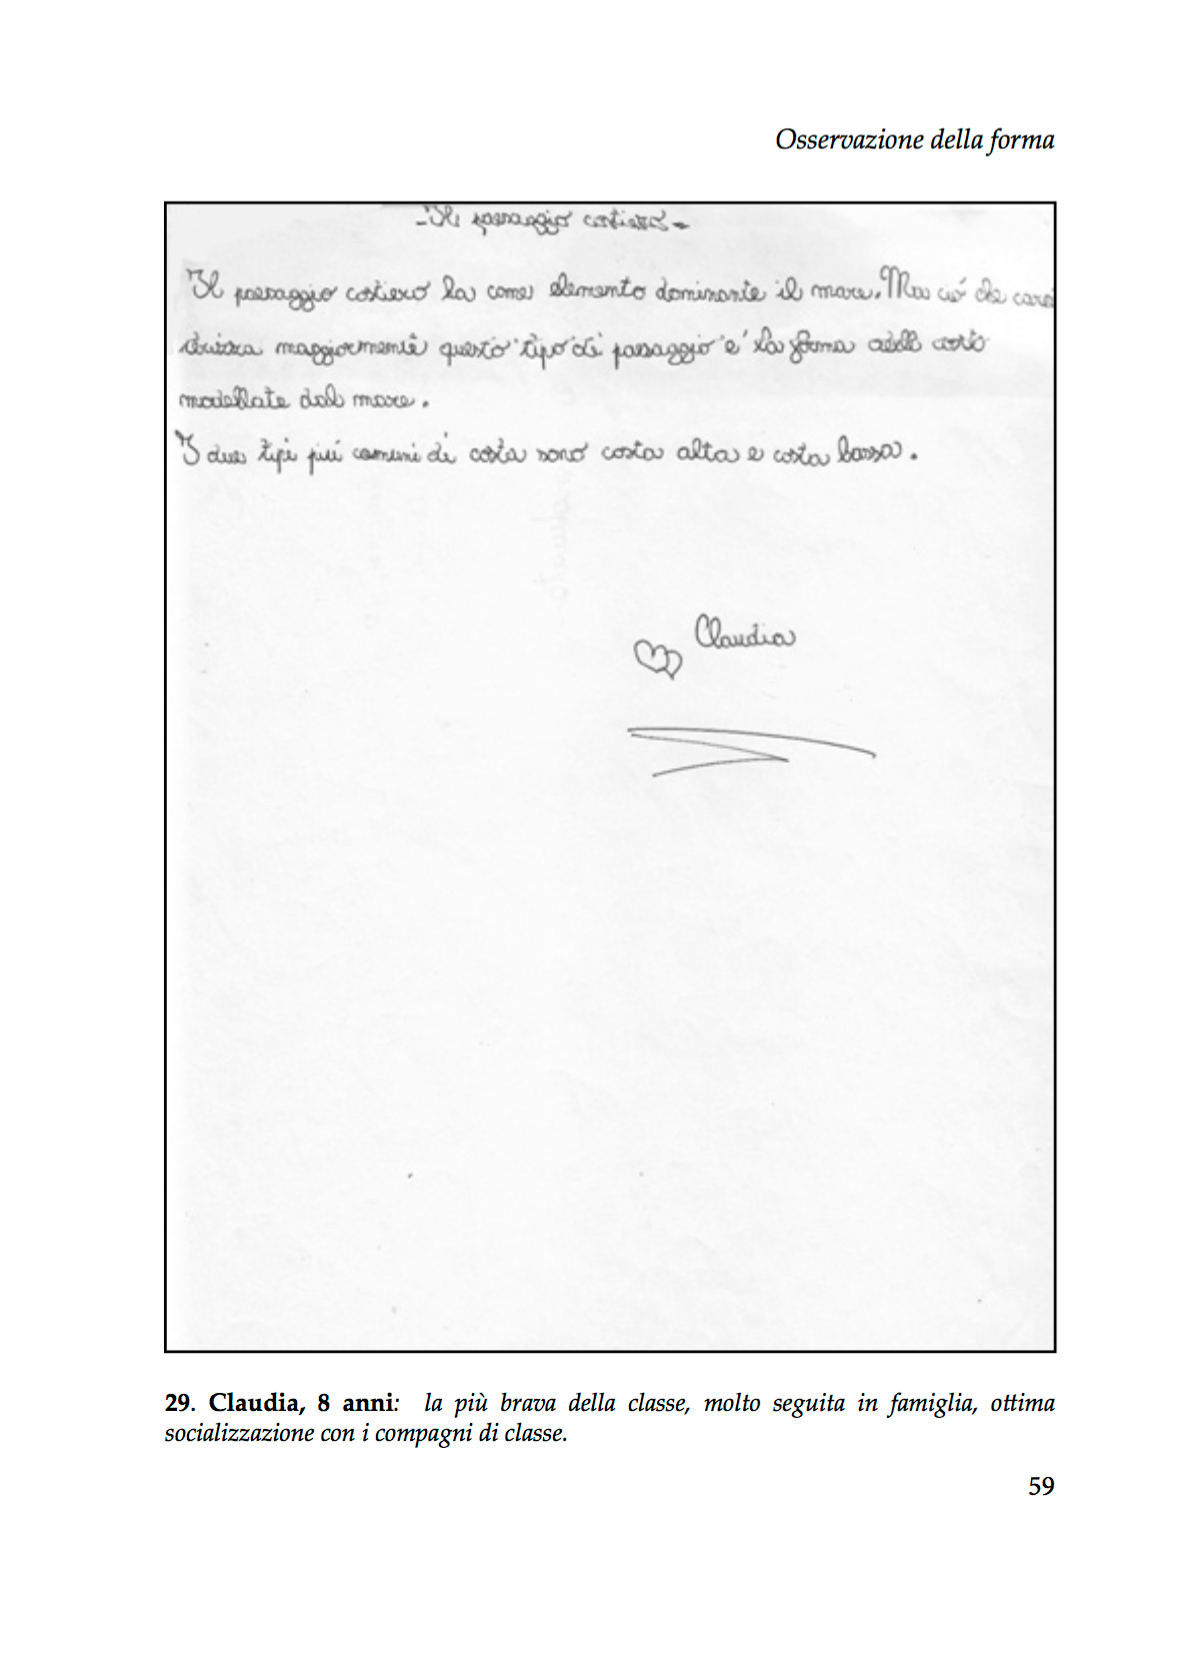 Osservazione della forma
-Il paesaggio costiero-
Il paesaggio costiero ha come elemento dominante il mare. Ma ció che carat
terizza maggiormente questo tipo di paesaggio e' la forma delle coste
modellate dal mare.
I due tipi piú comuni di costa sono costa alta e costa bassa.
Claudia
29. Claudia, 8 anni: la più brava della classe, molto seguita in famiglia, ottima
socializzazione con i compagni di classe.
59